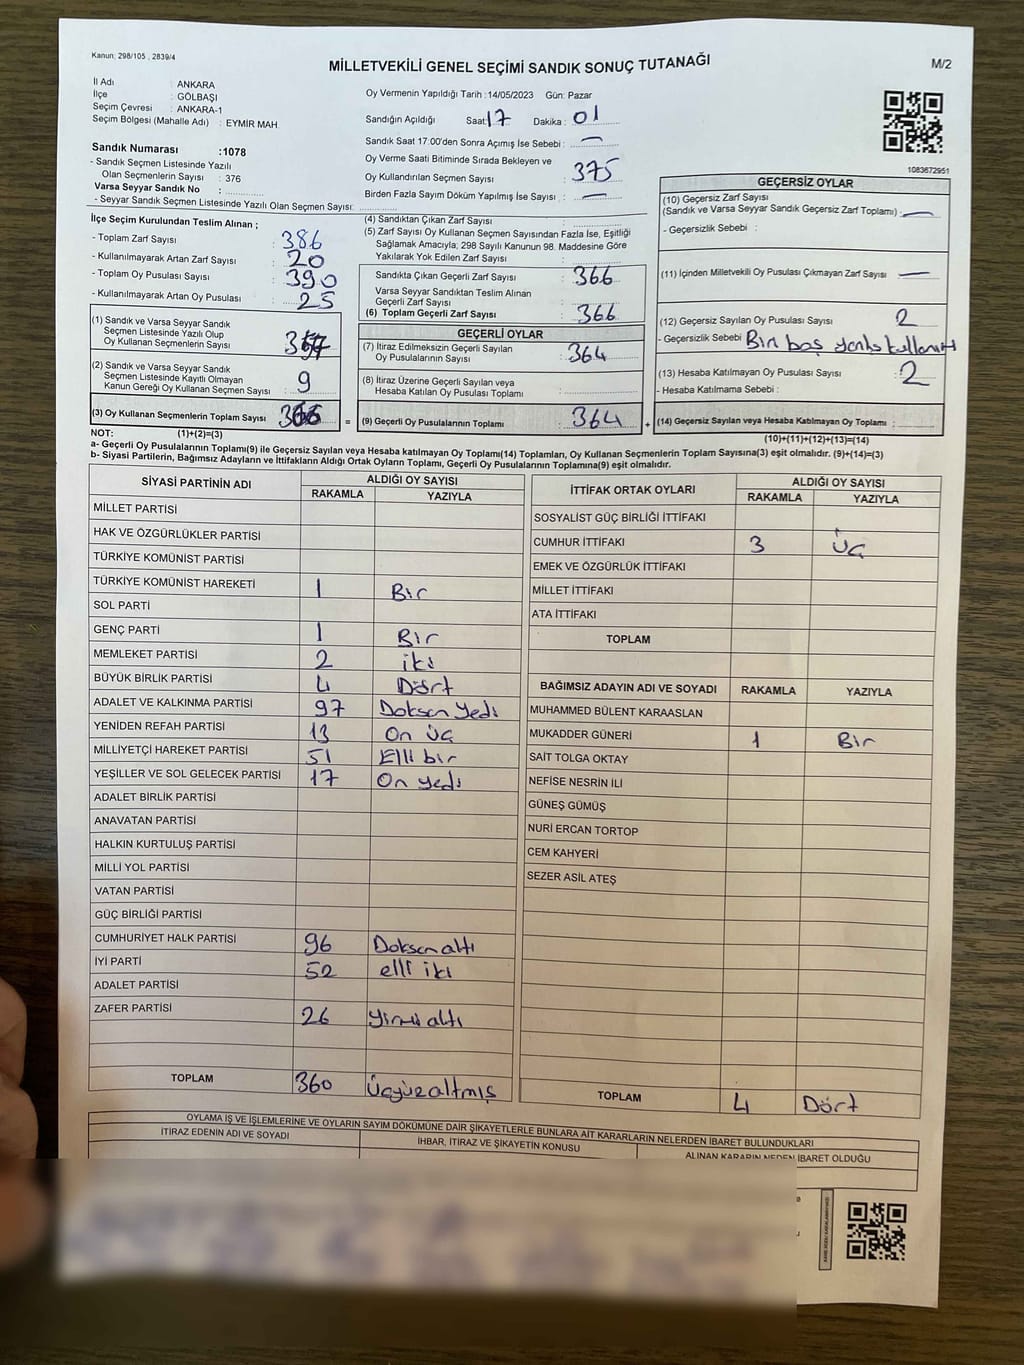 Kanun: 298/105 , 2839/4
MİLLETVEKİLİ GENEL SEÇİMİ SANDIK SONUÇ TUTANAĞI
M/2
İl Adı : ANKARA
İlçe : GÖLBAŞI
Seçim Çevresi : ANKARA-1
Seçim Bölgesi (Mahalle Adı) : EYMİR MAH
Sandık Numarası :1078
- Sandık Seçmen Listesinde Yazılı
Olan Seçmenlerin Sayısı : 376
Varsa Seyyar Sandık No :
- Seyyar Sandık Seçmen Listesinde Yazılı Olan Seçmen Sayısı:
Oy Vermenin Yapıldığı Tarih :14/05/2023 Gün: Pazar
Sandığın Açıldığı Saat: 17 Dakika : 01
Sandık Saat 17:00'den Sonra Açımış İse Sebebi : —
Oy Verme Saati Bitiminde Sırada Bekleyen ve
Oy Kullandırılan Seçmen Sayısı : 375
Birden Fazla Sayım Döküm Yapılmış İse Sayısı : —
1083672951
İlçe Seçim Kurulundan Teslim Alınan ;
- Toplam Zarf Sayısı : 386
- Kullanılmayarak Artan Zarf Sayısı : 20
- Toplam Oy Pusulası Sayısı : 390
- Kullanılmayarak Artan Oy Pusulası : 25
(1) Sandık ve Varsa Seyyar Sandık
Seçmen Listesinde Yazılı Olup
Oy Kullanan Seçmenlerin Sayısı :
(2) Sandık ve Varsa Seyyar Sandık
Seçmen Listesinde Kayıtlı Olmayan
Kanun Gereği Oy Kullanan Seçmen Sayısı : 9
(3) Oy Kullanan Seçmenlerin Toplam Sayısı 366 =
(4) Sandıktan Çıkan Zarf Sayısı :
(5) Zarf Sayısı Oy Kullanan Seçmen Sayısından Fazla İse, Eşitliği
Sağlamak Amacıyla; 298 Sayılı Kanunun 98. Maddesine Göre
Yakılarak Yok Edilen Zarf Sayısı :
Sandıkta Çıkan Geçerli Zarf Sayısı : 366
Varsa Seyyar Sandıktan Teslim Alınan
Geçerli Zarf Sayısı :
(6) Toplam Geçerli Zarf Sayısı : 366
GEÇERLİ OYLAR
(7) İtiraz Edilmeksizin Geçerli Sayılan
Oy Pusulalarının Sayısı : 364
(8) İtiraz Üzerine Geçerli Sayılan veya
Hesaba Katılan Oy Pusulası Toplamı :
(9) Geçerli Oy Pusulalarının Toplamı : 364 +
GEÇERSİZ OYLAR
(10) Geçersiz Zarf Sayısı
(Sandık ve Varsa Seyyar Sandık Geçersiz Zarf Toplamı) : —
- Geçersizlik Sebebi :
(11) İçinden Milletvekili Oy Pusulası Çıkmayan Zarf Sayısı : —
(12) Geçersiz Sayılan Oy Pusulası Sayısı : 2
- Geçersizlik Sebebi : Bir boş
(13) Hesaba Katılmayan Oy Pusulası Sayısı : 2
- Hesaba Katılmama Sebebi :
(14) Geçersiz Sayılan veya Hesaba Katılmayan Oy Toplamı :
NOT: (1)+(2)=(3)
(10)+(11)+(12)+(13)=(14)
a- Geçerli Oy Pusulalarının Toplamı(9) ile Geçersiz Sayılan veya Hesaba katılmayan Oy Toplamı(14) Toplamları, Oy Kullanan Seçmenlerin Toplam Sayısına(3) eşit olmalıdır. (9)+(14)=(3)
b- Siyasi Partilerin, Bağımsız Adayların ve İttifakların Aldığı Ortak Oyların Toplamı, Geçerli Oy Pusulalarının Toplamına(9) eşit olmalıdır.
SİYASİ PARTİNİN ADI ALDIĞI OY SAYISI
RAKAMLA YAZIYLA
MİLLET PARTİSİ
HAK VE ÖZGÜRLÜKLER PARTİSİ
TÜRKİYE KOMÜNİST PARTİSİ
TÜRKİYE KOMÜNİST HAREKETİ 1 Bir
SOL PARTİ
GENÇ PARTİ 1 Bir
MEMLEKET PARTİSİ 2 iki
BÜYÜK BİRLİK PARTİSİ 4 Dört
ADALET VE KALKINMA PARTİSİ 97 Doksan yedi
YENİDEN REFAH PARTİSİ 13 On üç
MİLLİYETÇİ HAREKET PARTİSİ 51 Elli bir
YEŞİLLER VE SOL GELECEK PARTİSİ 17 On yedi
ADALET BİRLİK PARTİSİ
ANAVATAN PARTİSİ
HALKIN KURTULUŞ PARTİSİ
MİLLİ YOL PARTİSİ
VATAN PARTİSİ
GÜÇ BİRLİĞİ PARTİSİ
CUMHURİYET HALK PARTİSİ 96 Doksan altı
İYİ PARTİ 52 elli iki
ADALET PARTİSİ
ZAFER PARTİSİ 26 yirmi altı
TOPLAM 360 Üçyüz altmış
İTTİFAK ORTAK OYLARI ALDIĞI OY SAYISI
RAKAMLA YAZIYLA
SOSYALİST GÜÇ BİRLİĞİ İTTİFAKI
CUMHUR İTTİFAKI 3 Üç
EMEK VE ÖZGÜRLÜK İTTİFAKI
MİLLET İTTİFAKI
ATA İTTİFAKI
TOPLAM
BAĞIMSIZ ADAYIN ADI VE SOYADI RAKAMLA YAZIYLA
MUHAMMED BÜLENT KARAASLAN
MUKADDER GÜNERİ 1 Bir
SAİT TOLGA OKTAY
NEFİSE NESRİN İLİ
GÜNEŞ GÜMÜŞ
NURİ ERCAN TORTOP
CEM KAHYERİ
SEZER ASİL ATEŞ
TOPLAM 4 Dört
OYLAMA İŞ VE İŞLEMLERİNE VE OYLARIN SAYIM DÖKÜMÜNE DAİR ŞİKAYETLERLE BUNLARA AİT KARARLARIN NELERDEN İBARET BULUNDUKLARI
İTİRAZ EDENİN ADI VE SOYADI İHBAR, İTİRAZ VE ŞİKAYETİN KONUSU ALINAN KARARIN NEDEN İBARET OLDUĞU